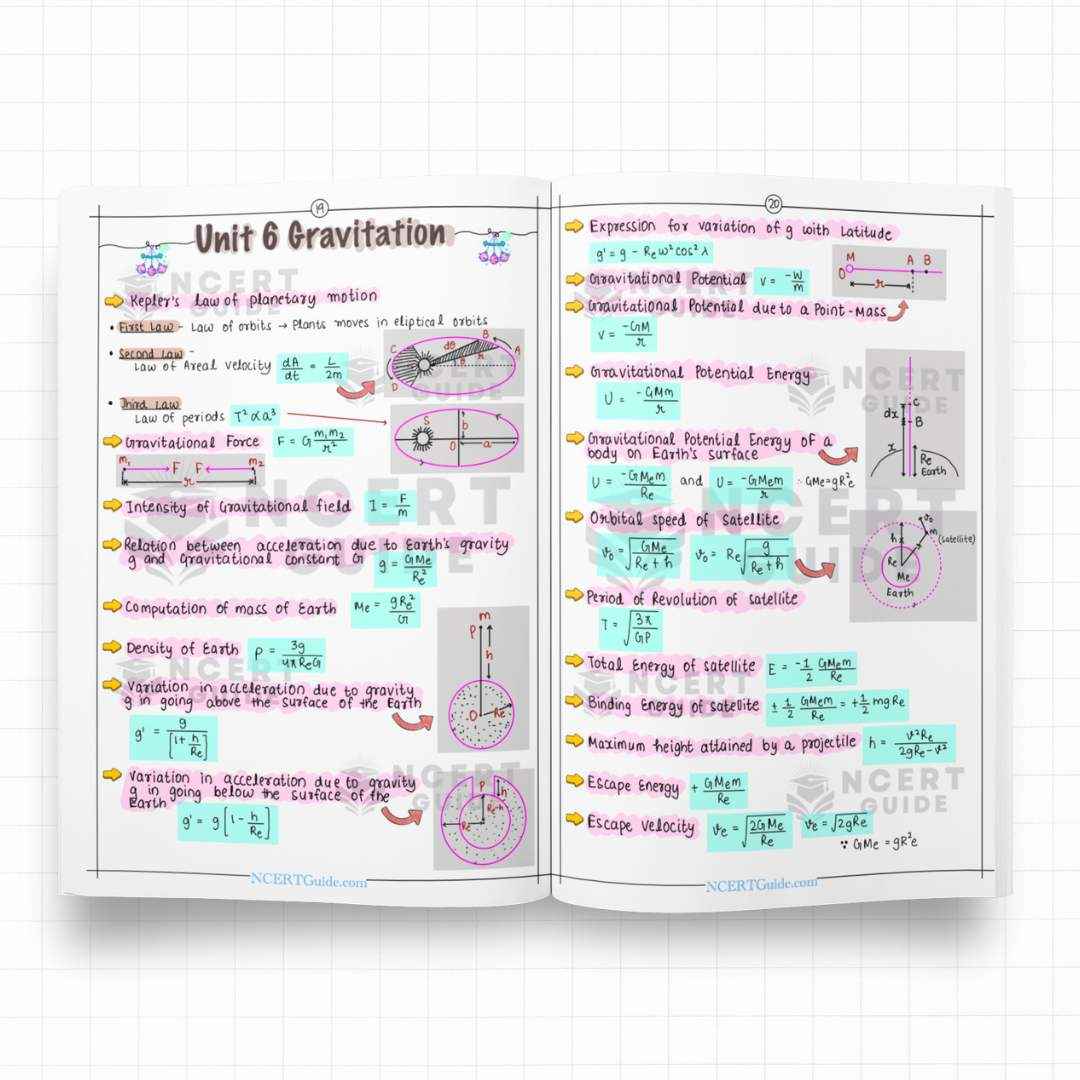 19
Unit 6 Gravitation
NCERT GUIDE
Kepler's law of planetary motion
• First Law - Law of orbits → Plants moves in eliptical orbits
• Second Law -
Law of Areal velocity dA/dt = L/2m
C dθ B A
D
• Third Law
Law of periods T² ∝ a³
S b
O a
Gravitational Force F = G m₁m₂/r²
m₁ F F m₂
r
Intensity of Gravitational field I = F/m
Relation between acceleration due to Earth's gravity
g and Gravitational constant G g = GMe/Re²
Computation of mass of Earth Me = gRe²/G
Density of Earth ρ = 3g/4πReG
Variation in acceleration due to gravity
g in going above the surface of the Earth
g' = g/[1+ h/Re]
P m
h
O Re
Variation in acceleration due to gravity
g in going below the surface of the
Earth
g' = g [1 - h/Re]
P h
Re
NCERTGuide.com
20
Expression for variation of g with Latitude
g' = g - Reω²cos²λ
M A B
O
r
Gravitational Potential V = -W/m
Gravitational Potential due to a Point-Mass
V = -GM/r
Gravitational Potential Energy
U = -GMm/r
C
dx B
x Re
Earth
Gravitational Potential Energy of a
body on Earth's surface
U = -GMem/Re and U = -GMem/r ∵ GMe=gRe²
Orbital speed of Satellite
v₀ = √GMe/Re+h v₀ = Re√g/Re+h
v₀
h m (satellite)
Re
Me
Earth
Period of Revolution of satellite
T = √3π/Gρ
Total Energy of satellite E = -1/2 GMem/Re
Binding Energy of satellite + 1/2 GMem/Re = +1/2 mgRe
Maximum height attained by a projectile h = v²Re/2gRe-v²
Escape Energy + GMem/Re
Escape velocity ve = √2GMe/Re ve = √2gRe
∵ GMe = gR²e
NCERTGuide.com